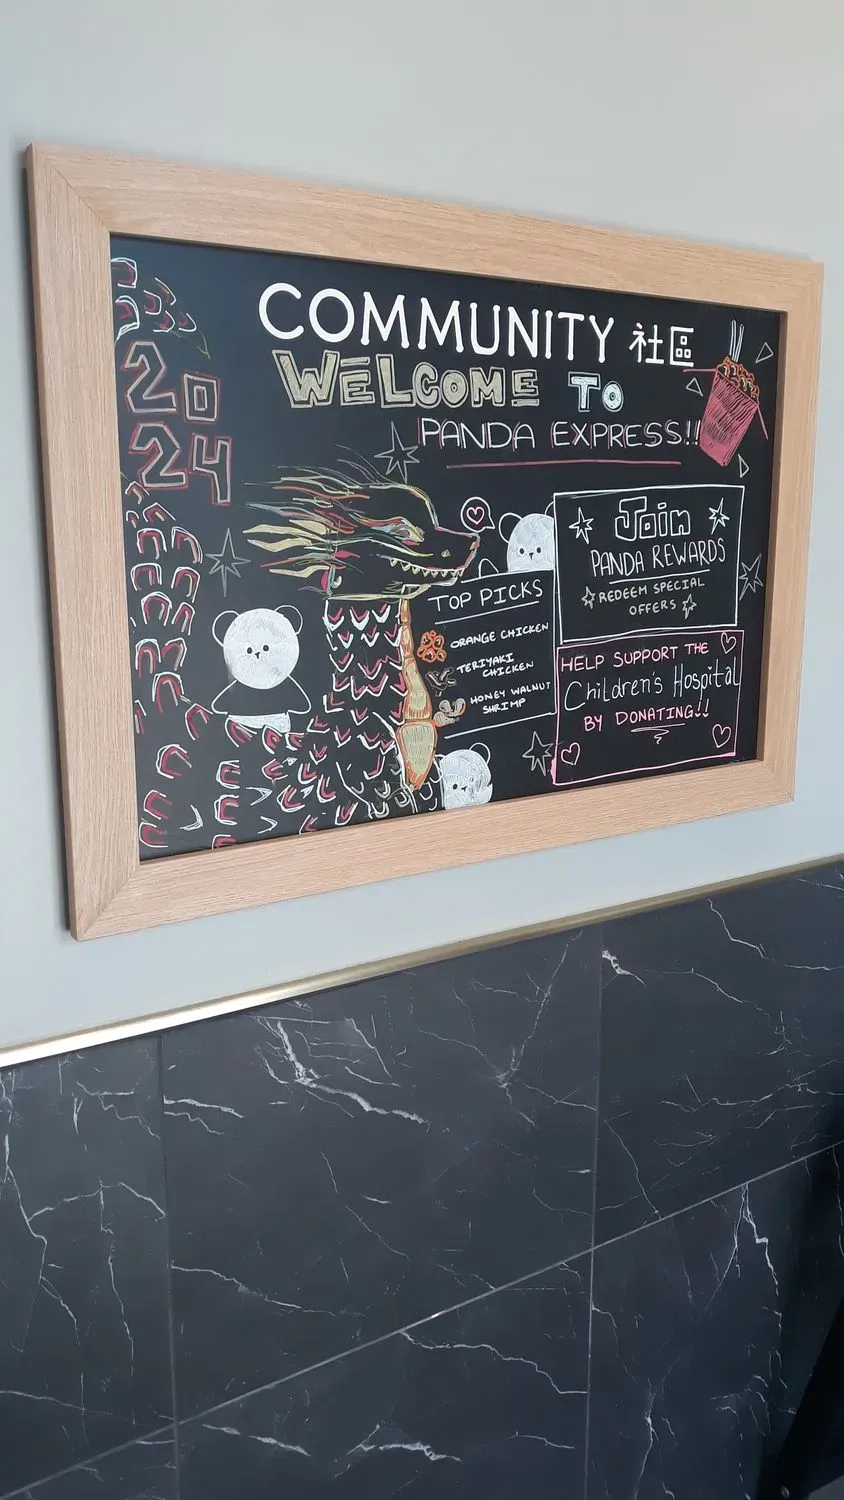 COMMUNITY 社區
WELCOME TO
PANDA EXPRESS!!
20
24
TOP PICKS
ORANGE CHICKEN
TERIYAKI
CHICKEN
HONEY WALNUT
SHRIMP
Join
PANDA REWARDS
REDEEM SPECIAL
OFFERS
HELP SUPPORT THE
Children's Hospital
BY DONATING!!